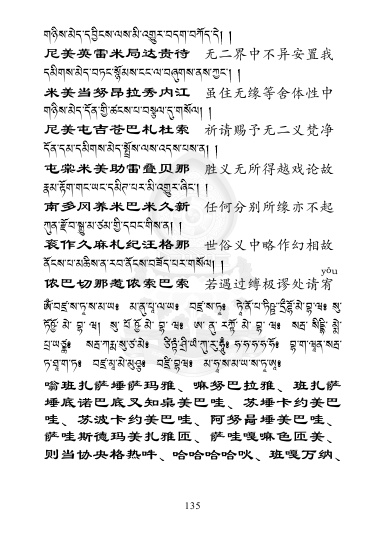 གཉིས་མེད་དབྱིངས་ལས་མི་འགྱུར་བདག་བཀོད་དེ། །
尼美英雷米局达贵待 无二界中不异安置我
དམིགས་མེད་བཏང་སྙོམས་ངང་ལ་བཞུགས་ནས་ཀྱང་། །
米美当努昂拉秀内江 虽住无缘等舍体性中
གཉིས་མེད་དོན་གྱི་ཚངས་པ་བསྩལ་དུ་གསོལ། །
尼美屯吉苍巴札杜索 祈请赐予无二义梵净
དོན་དམ་དམིགས་མེད་སྤྲོས་ལས་འདས་པས་ན། །
屯棠米美助雷叠贝那 胜义无所得越戏论故
རྣམ་རྟོག་གང་ཡང་དམིཊ་པར་མི་འགྱུར་ཞིང་། །
南多冈养米巴米久新 任何分别所缘亦不起
ཀུན་རྫོབ་སྒྱུ་མ་ཙམ་གྱི་དབང་གིས་ན། །
衮作久麻札纪汪格那 世俗义中略作幻相故
ནོངས་པ་མཆིས་ན་རབ་ནོངས་བཟོད་པར་གསོལ། །
yǒu
侬巴切那惹侬索巴索 若遇过缚极谬处请宥
ཨོཾ་བཛྲ་ས་ཏྭ་ས་མ་ཡ༔ མ་ནུ་པཱ་ལ་ཡ༔ བཛྲ་ས་ཏྭ༔
嗡班扎萨埵萨玛雅、嘛努巴拉雅、班扎萨
埵底诺巴底叉知桌美巴哇、苏埵卡约美巴
哇、苏波卡约美巴哇、阿努局埵美巴哇、
萨哇斯德玛美扎雅匝、萨哇嘎嘛色匝美、
则当协央格热吽、哈哈哈哈吙、班嘎万纳、
135